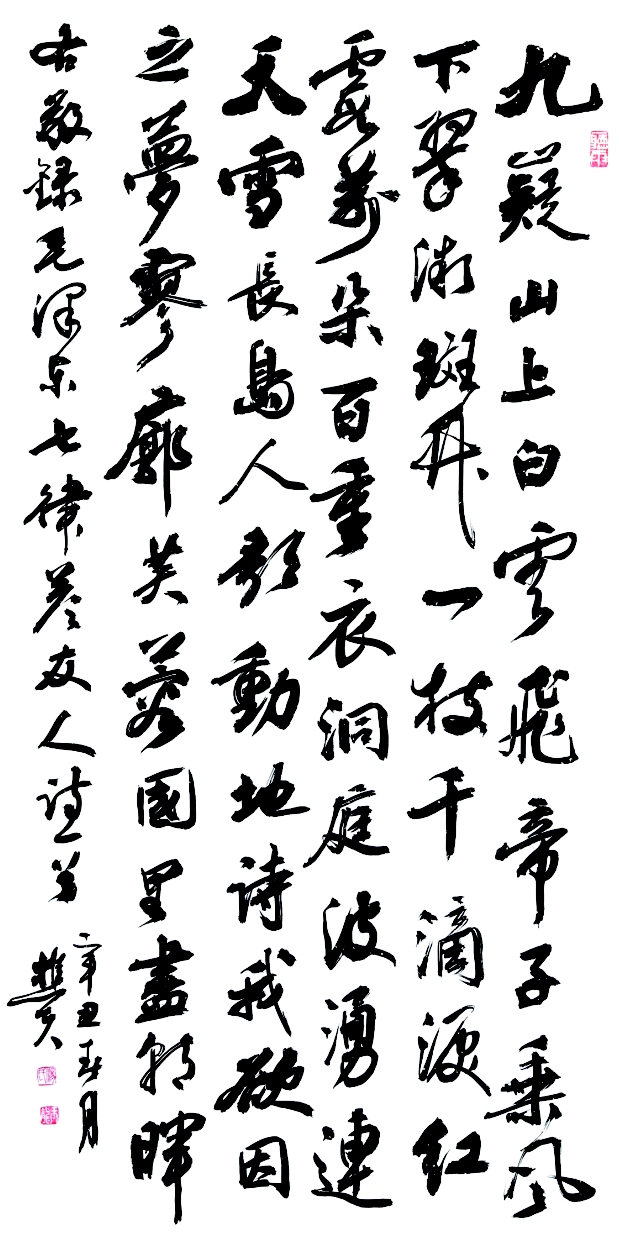 九嶷山上白雲飛帝子乘風
下翠微斑竹一枝千滴淚紅
霞萬朵百重衣洞庭波湧連
天雪長島人歌動地詩我欲因
之夢寥廓芙蓉國里盡朝暉
右敬録毛澤东七律答友人詩一首
辛丑春月
樵夫